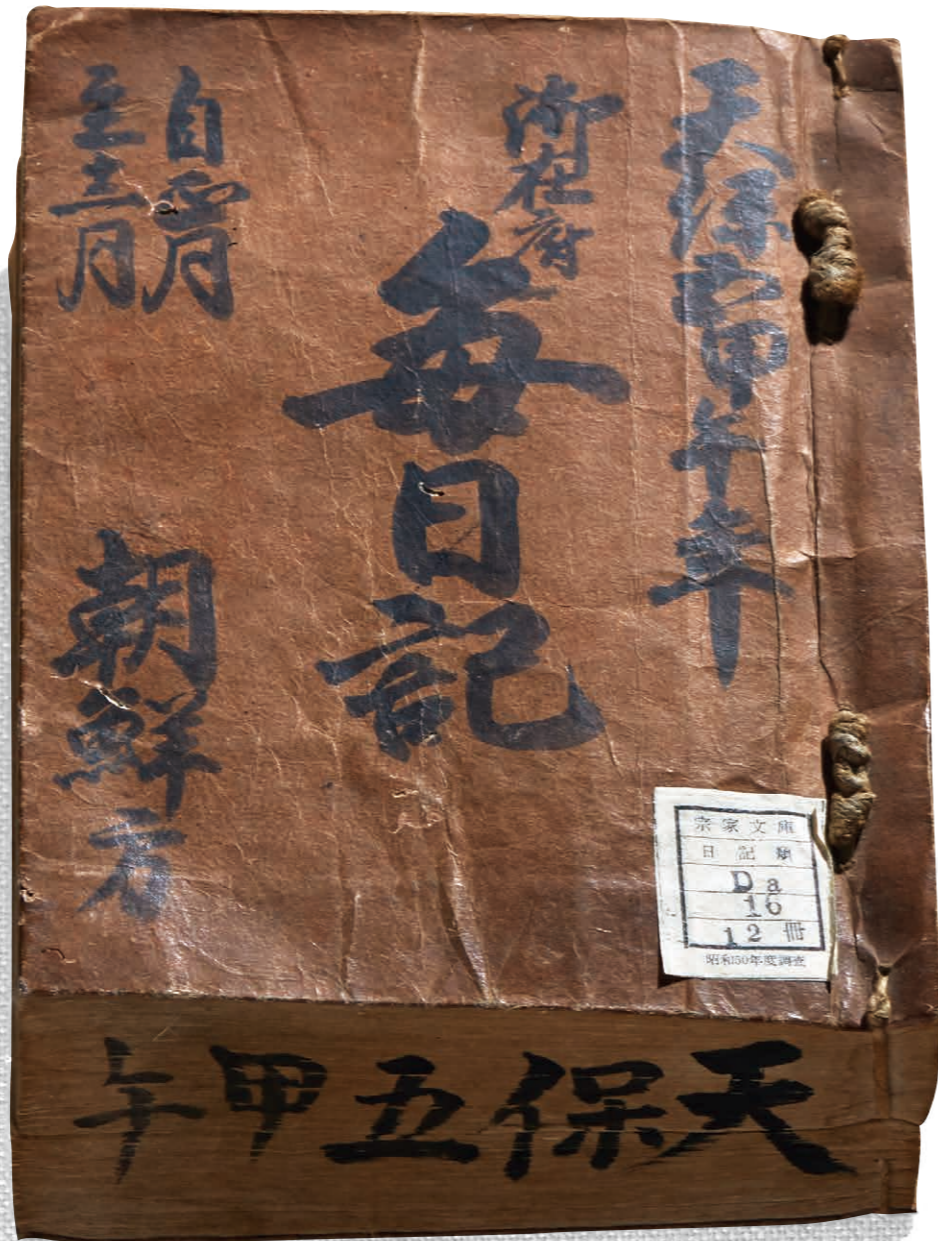 天保五甲午年
御在府
毎日記
自正月
至十二月
朝鮮方
宗家文庫
日記類
Da
16
12 冊
昭和50年度調査
天保五甲午